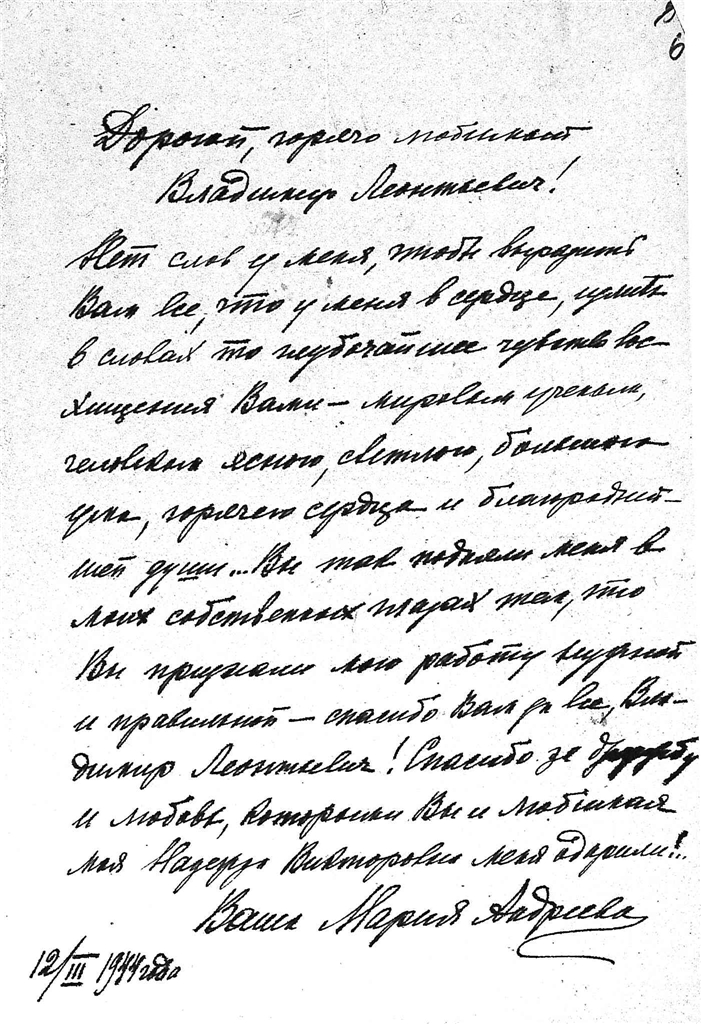 8
6
Дорогой, горячо любимый
Владимир Леонтьевич!
Нет слов у меня, чтобы выразить
Вам все, что у меня в сердце, излить
в словах то глубочайшее чувство вос-
хищения Вами — мировым ученым,
человеком ясного, светлого, большого
ума, горячего сердца и благородней-
шей души... Вы так подняли меня в
моих собственных глазах тем, что
Вы признали мою работу нужной
и правильной — спасибо Вам за все, Вла-
димир Леонтьевич! Спасибо за дружбу
и любовь, которыми Вы и любимая
моя Надежда Викторовна меня одарили!..
Ваша Мария Андреева
12/III 1944 года